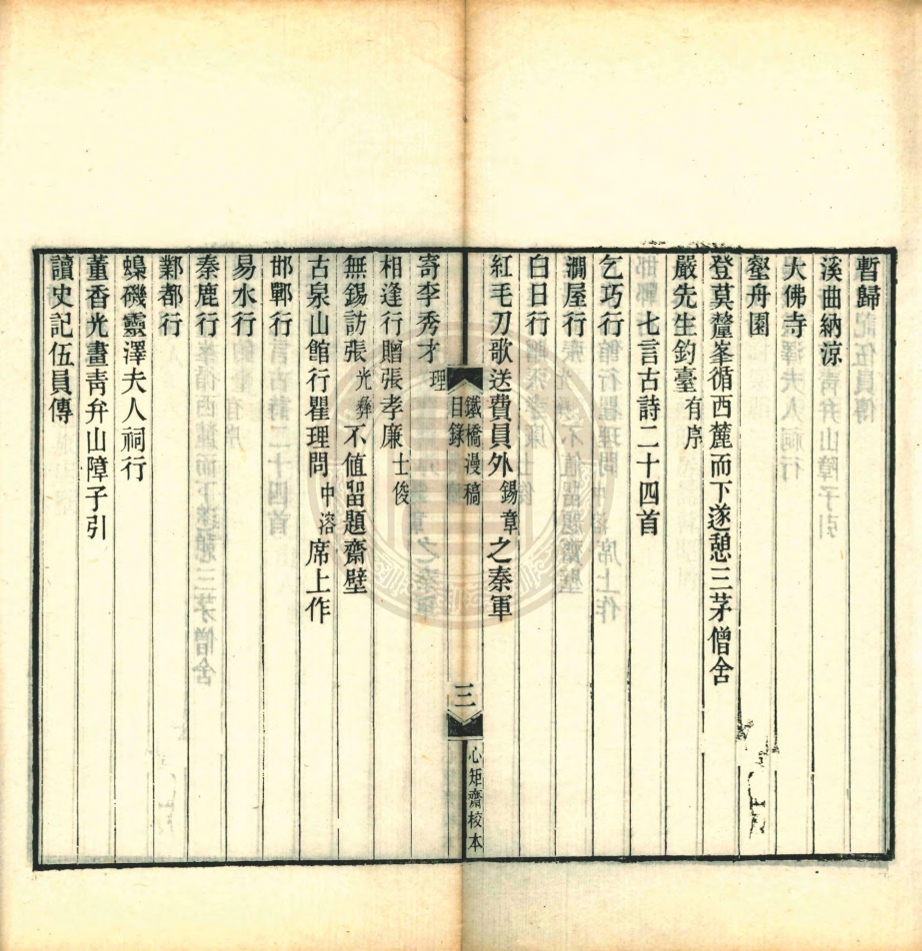 暫歸
溪曲納涼
大佛寺
壑舟園
登莫釐峯循西麓而下遂憩三茅僧舍
嚴先生釣臺有序
七言古詩二十四首
乞巧行
澗屋行
白日行
紅毛刀歌送費員外錫章之秦軍
鐵橋漫稿
目錄
三
心矩齋校本
寄李秀才理
相逢行贈張孝廉士俊
無錫訪張光彝不值畱題齋壁
古泉山館行瞿理問中溶席上作
邯鄲行
易水行
秦鹿行
鄴都行
蟂磯靈澤夫人祠行
董香光畫靑弁山障子引
讀史記伍員傳